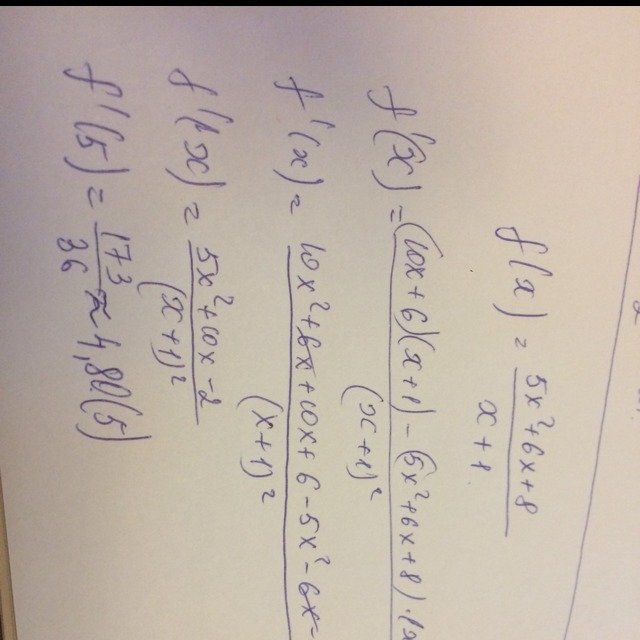 f(x) = (5x²+6x+8)/(x+1)
f'(x) = ((10x+6)(x+1) - (5x²+6x+8)·1)/((x+1)²)
f'(x) = (10x²+6x+10x+6-5x²-6x-)/((x+1)²)
f'(x) = (5x²+10x-2)/((x+1)²)
f'(5) = 173/36 ≈ 4,80(5)